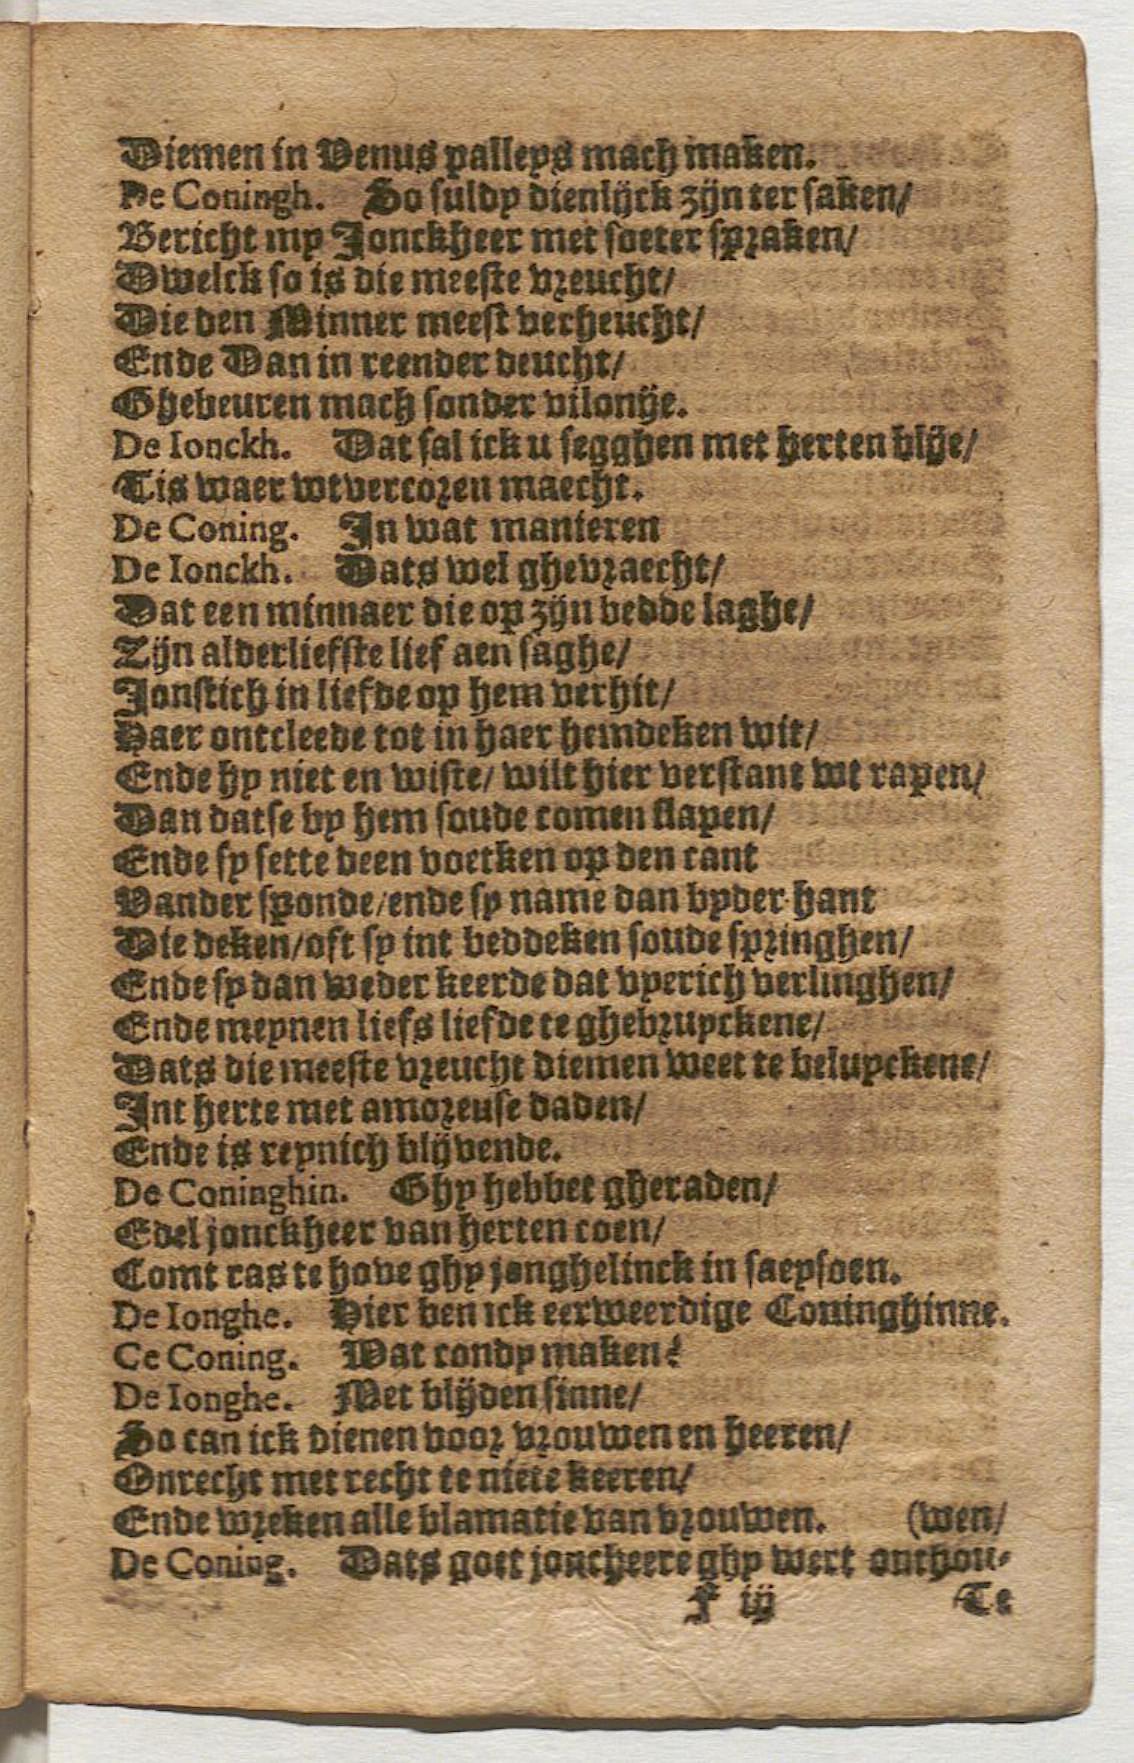 Diemen in Venus palleys mach maken.
De Coningh. So suldy dienlijck zijn ter saken/
Bericht my Jonckheer met soeter spraken/
Dwelck so is die meeste vreucht/
Die den Minner meest verheucht/
Ende Dan in reender deucht/
Ghebeuren mach sonder vilonije.
De Ionckh. Dat sal ick u segghen met herten blije/
Tis waer wtvercozen maecht.
De Coning. In wat manieren
De Ionckh. Dats wel ghevraecht/
Dat een minnaer die op zijn bedde laghe/
Zijn alderliefste lief aen saghe/
Jonstich in liefde op hem verhit/
Haer ontcleede tot in haer hemdeken wit/
Ende hy niet en wiste/ wilt hier verstant wt rapen/
Dan datse by hem soude comen slapen/
Ende sy sette deen voetken op den cant
Vander sponde/ende sy name dan byder hant
Die deken/oft sy int beddeken soude springhen/
Ende sy dan weder keerde dat vyerich verlinghen/
Ende meynen liefs liefde te ghebruyckene/
Dats die meeste vreucht diemen weet te beluyckene/
Int herte met amoreuse daden/
Ende is reynich blijvende.
De Coninghin. Ghy hebbet gheraden/
Edel jonckheer van herten coen/
Comt ras te hove ghy jonghelinck in saeysoen.
De Ionghe. Hier ben ick eerweerdige Coninghinne.
Ce Coning. Wat condy maken?
De Ionghe. Met blijden sinne/
So can ick dienen voor vrouwen en heeren/
Onrecht met recht te niete keeren/
Ende wreken alle blamatie van vrouwen. (wen/
De Coning. Dats goet joncheere ghy wert onthou-
f iij Te